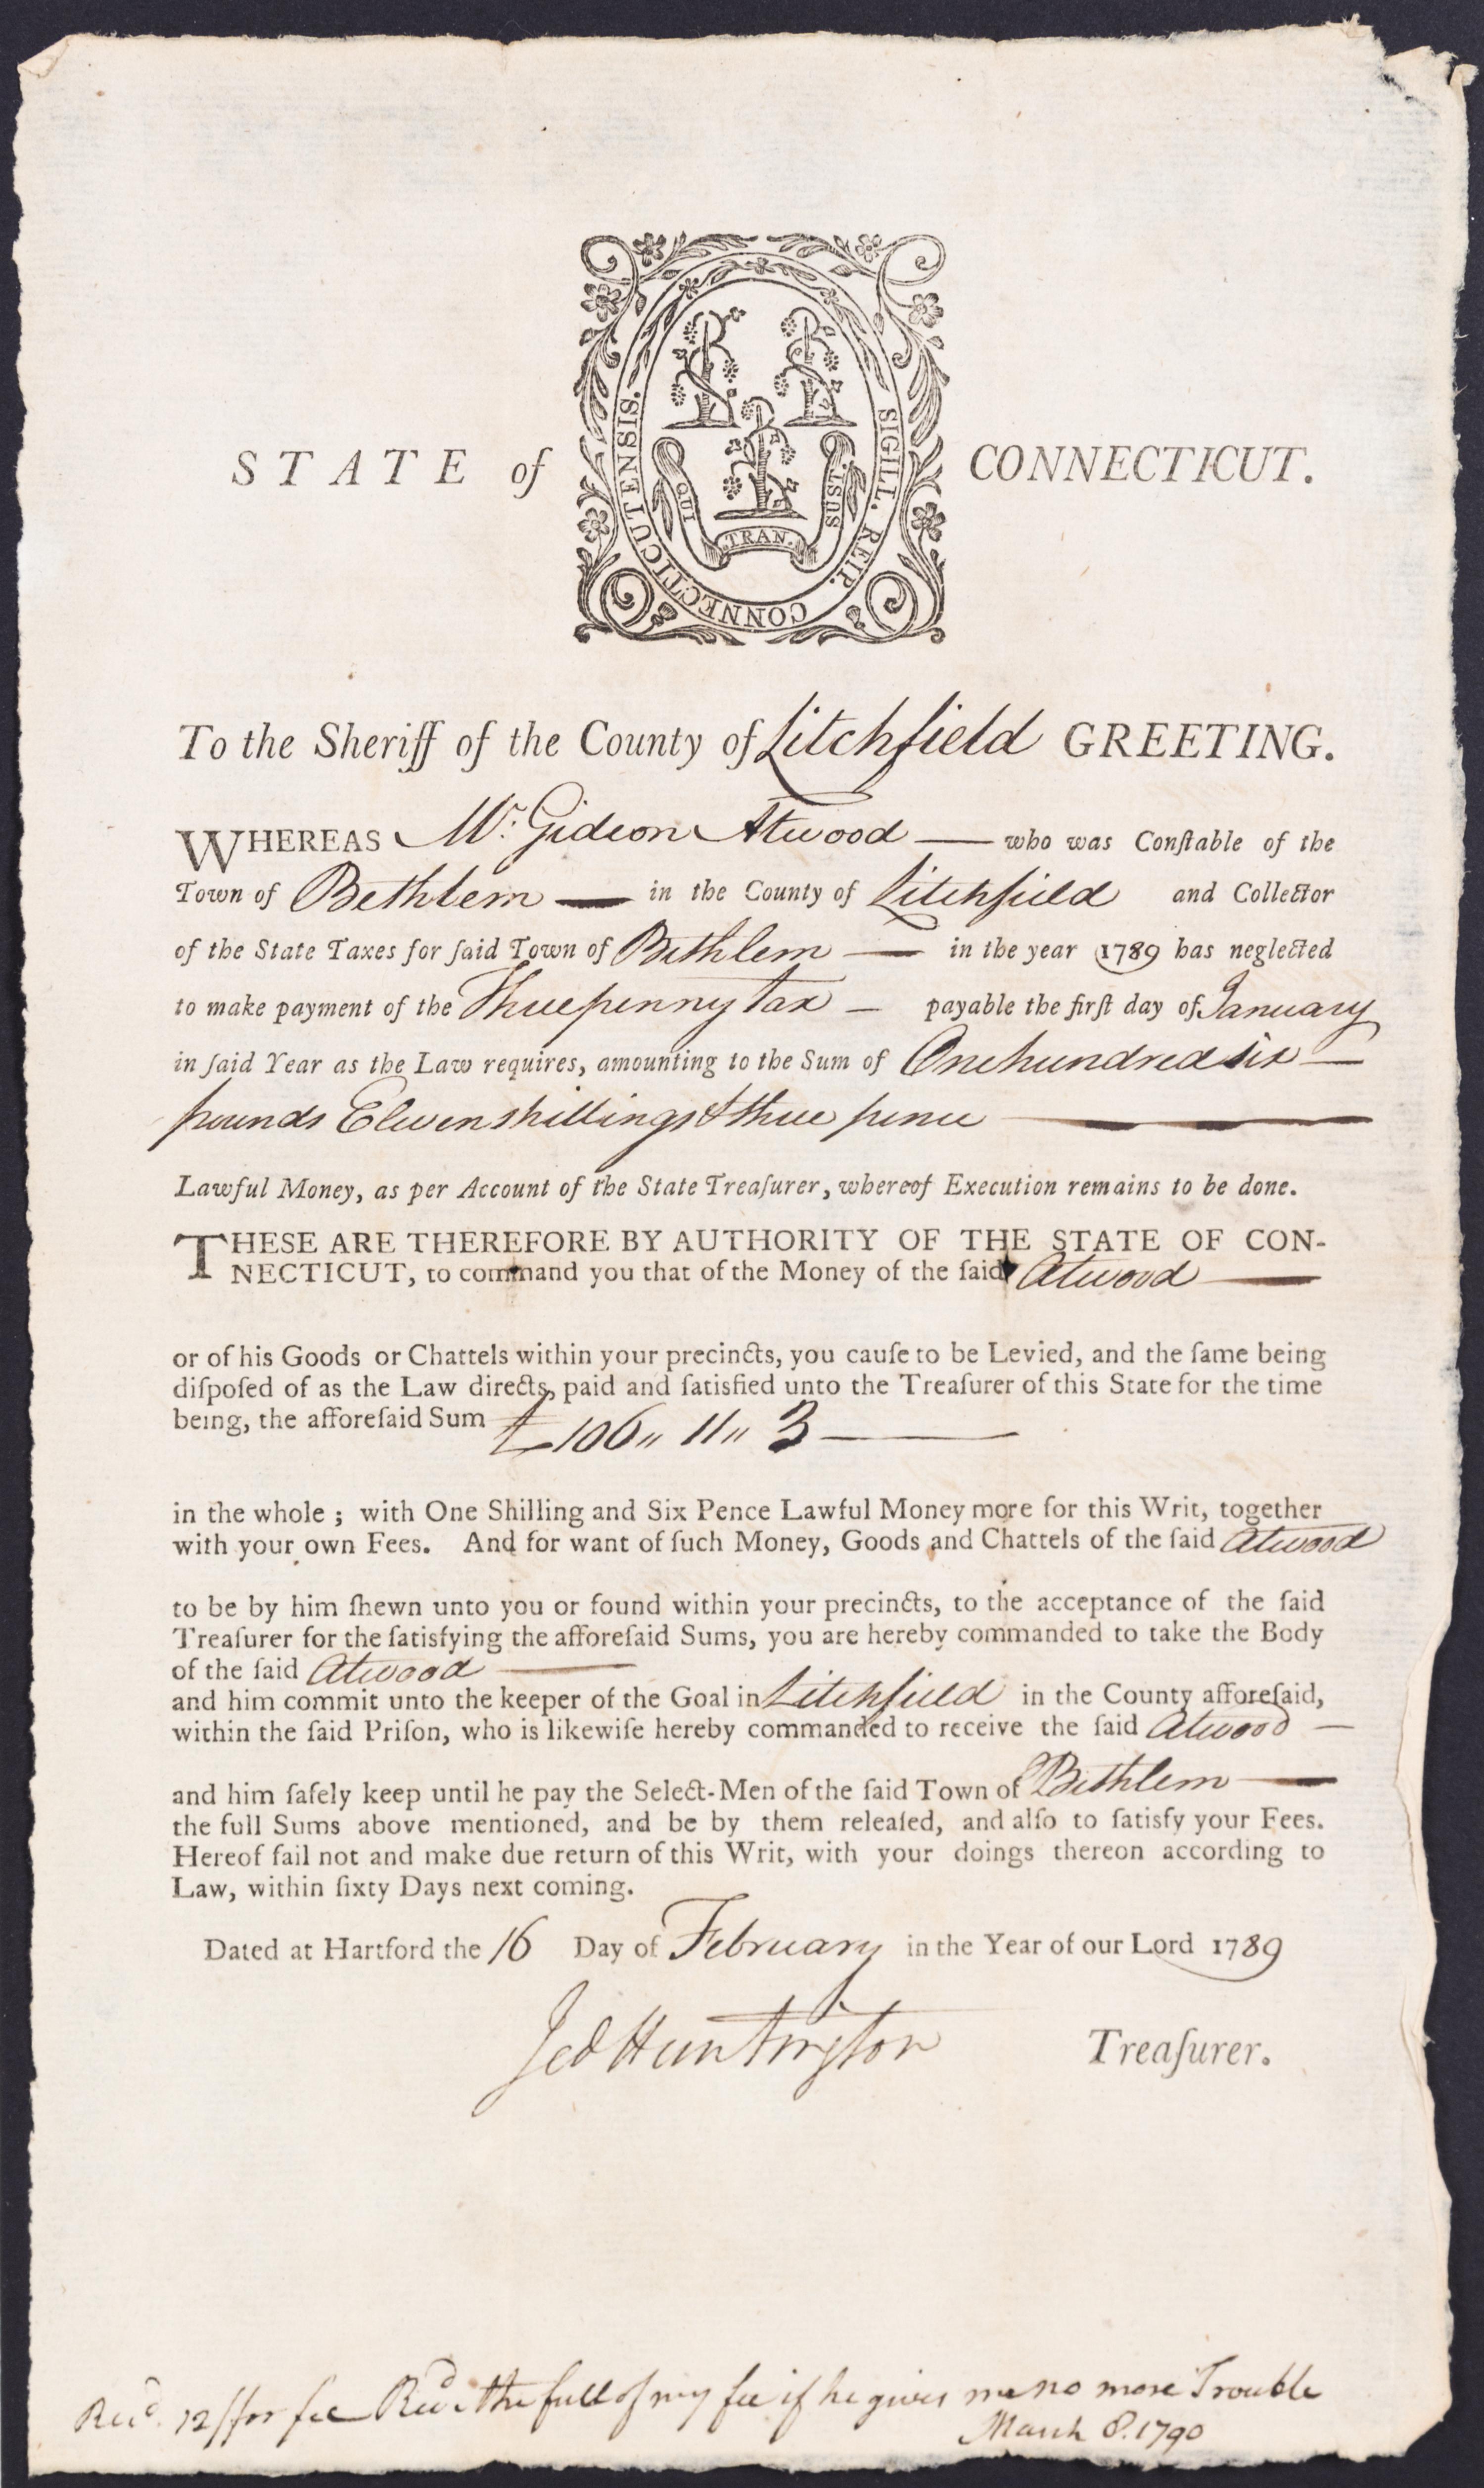 STATE of CONNECTICUT.
SIGILL. REIP. CONNECTICUTENSIS.
QUI TRAN. SUST.
To the Sheriff of the County of Litchfield GREETING.
WHEREAS Mr. Gideon Atwood — who was Conſtable of the
Town of Bethlem — in the County of Litchfield and Collector
of the State Taxes for ſaid Town of Bethlem — in the year 1789 has neglected
to make payment of the Threepenny Tax — payable the firſt day of January
in ſaid Year as the Law requires, amounting to the Sum of One hundred six —
pounds Eleven shillings & three pence —
Lawful Money, as per Account of the State Treaſurer, whereof Execution remains to be done.
THESE ARE THEREFORE BY AUTHORITY OF THE STATE OF CON-
NECTICUT, to command you that of the Money of the ſaid Atwood —
or of his Goods or Chattels within your precincts, you cauſe to be Levied, and the ſame being
diſpoſed of as the Law directs, paid and ſatisfied unto the Treaſurer of this State for the time
being, the afforeſaid Sum £106 „ 11 „ 3 —
in the whole ; with One Shilling and Six Pence Lawful Money more for this Writ, together
with your own Fees. And for want of ſuch Money, Goods and Chattels of the ſaid Atwood
to be by him ſhewn unto you or found within your precincts, to the acceptance of the ſaid
Treaſurer for the ſatisfying the afforeſaid Sums, you are hereby commanded to take the Body
of the ſaid Atwood —
and him commit unto the keeper of the Goal in Litchfield in the County afforeſaid,
within the ſaid Priſon, who is likewiſe hereby commanded to receive the ſaid Atwood —
and him ſafely keep until he pay the Select-Men of the ſaid Town of Bethlem —
the full Sums above mentioned, and be by them releaſed, and alſo to ſatisfy your Fees.
Hereof fail not and make due return of this Writ, with your doings thereon according to
Law, within ſixty Days next coming.
Dated at Hartford the 16 Day of February in the Year of our Lord 1789
Jed Huntington Treaſurer.
Recd. 12/ for fee Recd. the full of my fee if he gives me no more Trouble
March 8. 1790